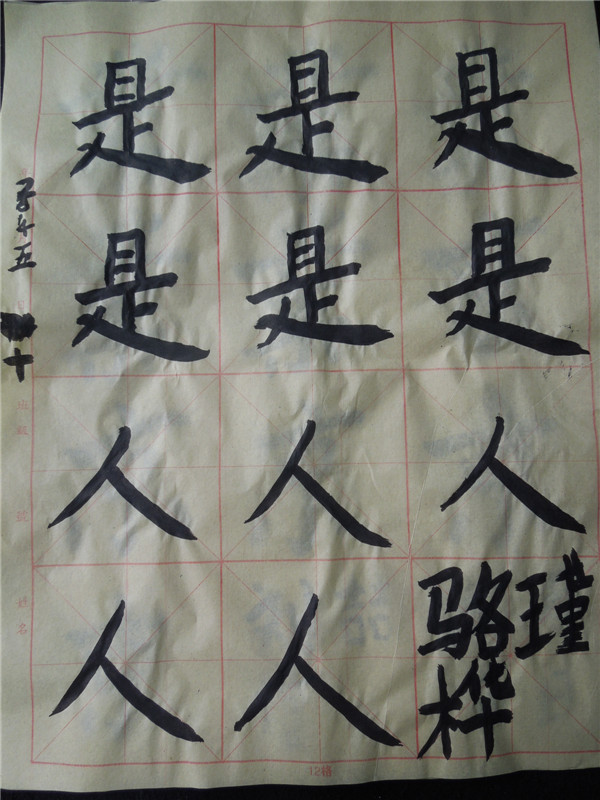 是是是
是是是
人人人
人人骆瑾
桦
五
十
姓名
12格